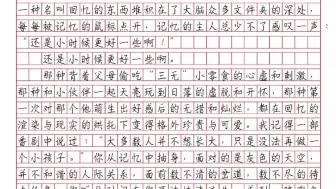 一种名叫回忆的东西堆积在了大脑众多文件夹的深处，
每每被记忆的鼠标点开，记忆的主人总少不了感叹一声
“还是小时候更好一些啊！”
还是小时候更好一些啊。
那种背着父母偷吃“三无”小零食的心虚和刺激，
那种和小伙伴一起天亮玩到日落的虚脱和开怀，那种第
一次对那个他萌生出好感后的无措和灿烂，都在回忆的
渲染与现实的烘托下变得格外珍贵与可爱。我记得一部
番剧中说过：“大多数人并不想长大，只是没法再做一
个小孩子。”你从记忆中抽身，面对的是灰色的天空，
并不和谐的人际关系，面前数不清的尝道，数不尽的存